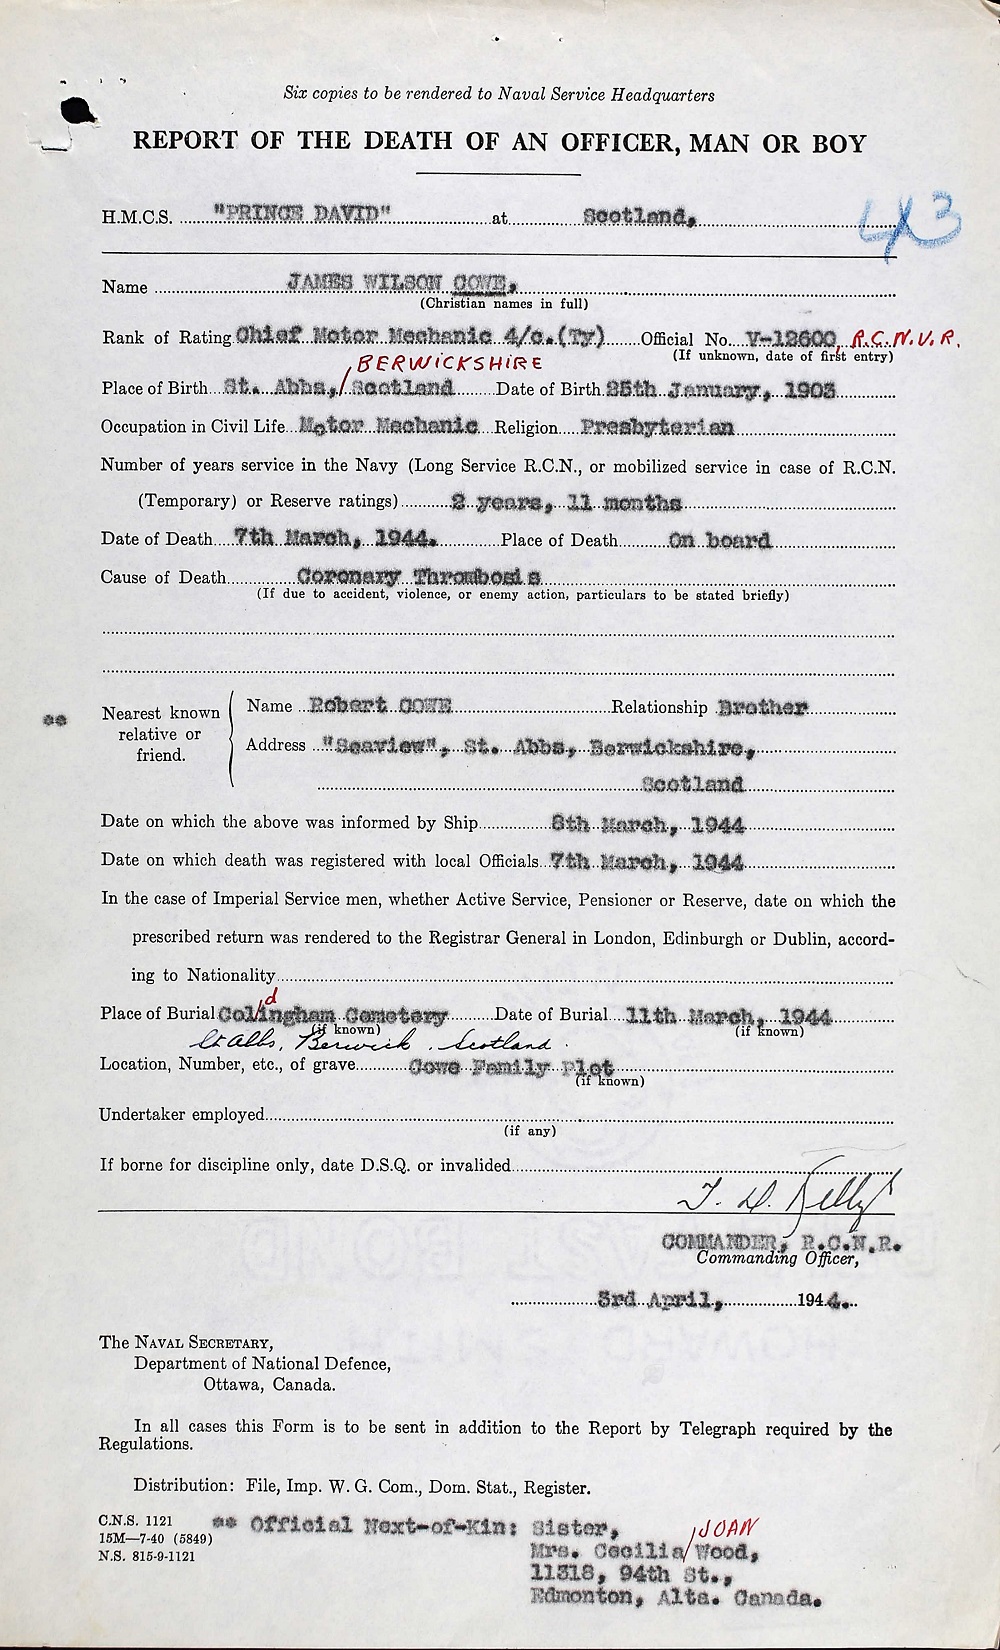 Six copies to be rendered to Naval Service Headquarters
REPORT OF THE DEATH OF AN OFFICER, MAN OR BOY
H.M.C.S. "PRINCE DAVID" at Scotland,
43
Name JAMES WILSON COWE,
(Christian names in full)
Rank of Rating Chief Motor Mechanic 4/c.(Ty) Official No. V-12600, R.C.N.V.R.
(If unknown, date of first entry)
BERWICKSHIRE
Place of Birth St. Abbs,/Scotland Date of Birth 25th January, 1903
Occupation in Civil Life Motor Mechanic Religion Presbyterian
Number of years service in the Navy (Long Service R.C.N., or mobilized service in case of R.C.N.
(Temporary) or Reserve ratings) 2 years, 11 months
Date of Death 7th March, 1944. Place of Death On board
Cause of Death Coronary Thrombosis
(If due to accident, violence, or enemy action, particulars to be stated briefly)
** Nearest known relative or friend.
Name Robert COWE Relationship Brother
Address "Seaview", St. Abbs, Berwickshire,
Scotland
Date on which the above was informed by Ship 8th March, 1944
Date on which death was registered with local Officials 7th March, 1944
In the case of Imperial Service men, whether Active Service, Pensioner or Reserve, date on which the
prescribed return was rendered to the Registrar General in London, Edinburgh or Dublin, accord-
ing to Nationality
d
Place of Burial Col/ingham Cemetery Date of Burial 11th March, 1944
(if known) (if known)
St Abbs, Berwick, Scotland.
Location, Number, etc., of grave Cowe Family Plot
(if known)
Undertaker employed
(if any)
If borne for discipline only, date D.S.Q. or invalided
T. D. Kelly
COMMANDER, R.C.N.R.
Commanding Officer,
3rd April, 1944.
The NAVAL SECRETARY,
Department of National Defence,
Ottawa, Canada.
In all cases this Form is to be sent in addition to the Report by Telegraph required by the
Regulations.
Distribution: File, Imp. W. G. Com., Dom. Stat., Register.
C.N.S. 1121
15M—7-40 (5849)
N.S. 815-9-1121
** Official Next-of-Kin: Sister,
JOAN
Mrs. Cecilia/Wood,
11318, 94th St.,
Edmonton, Alta. Canada.